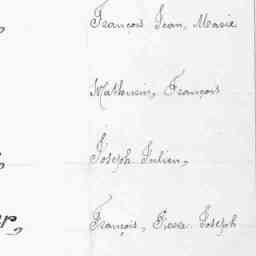 François Jean, Marie
Mathurin, François
Joseph Julien,
François, Pierre Joseph